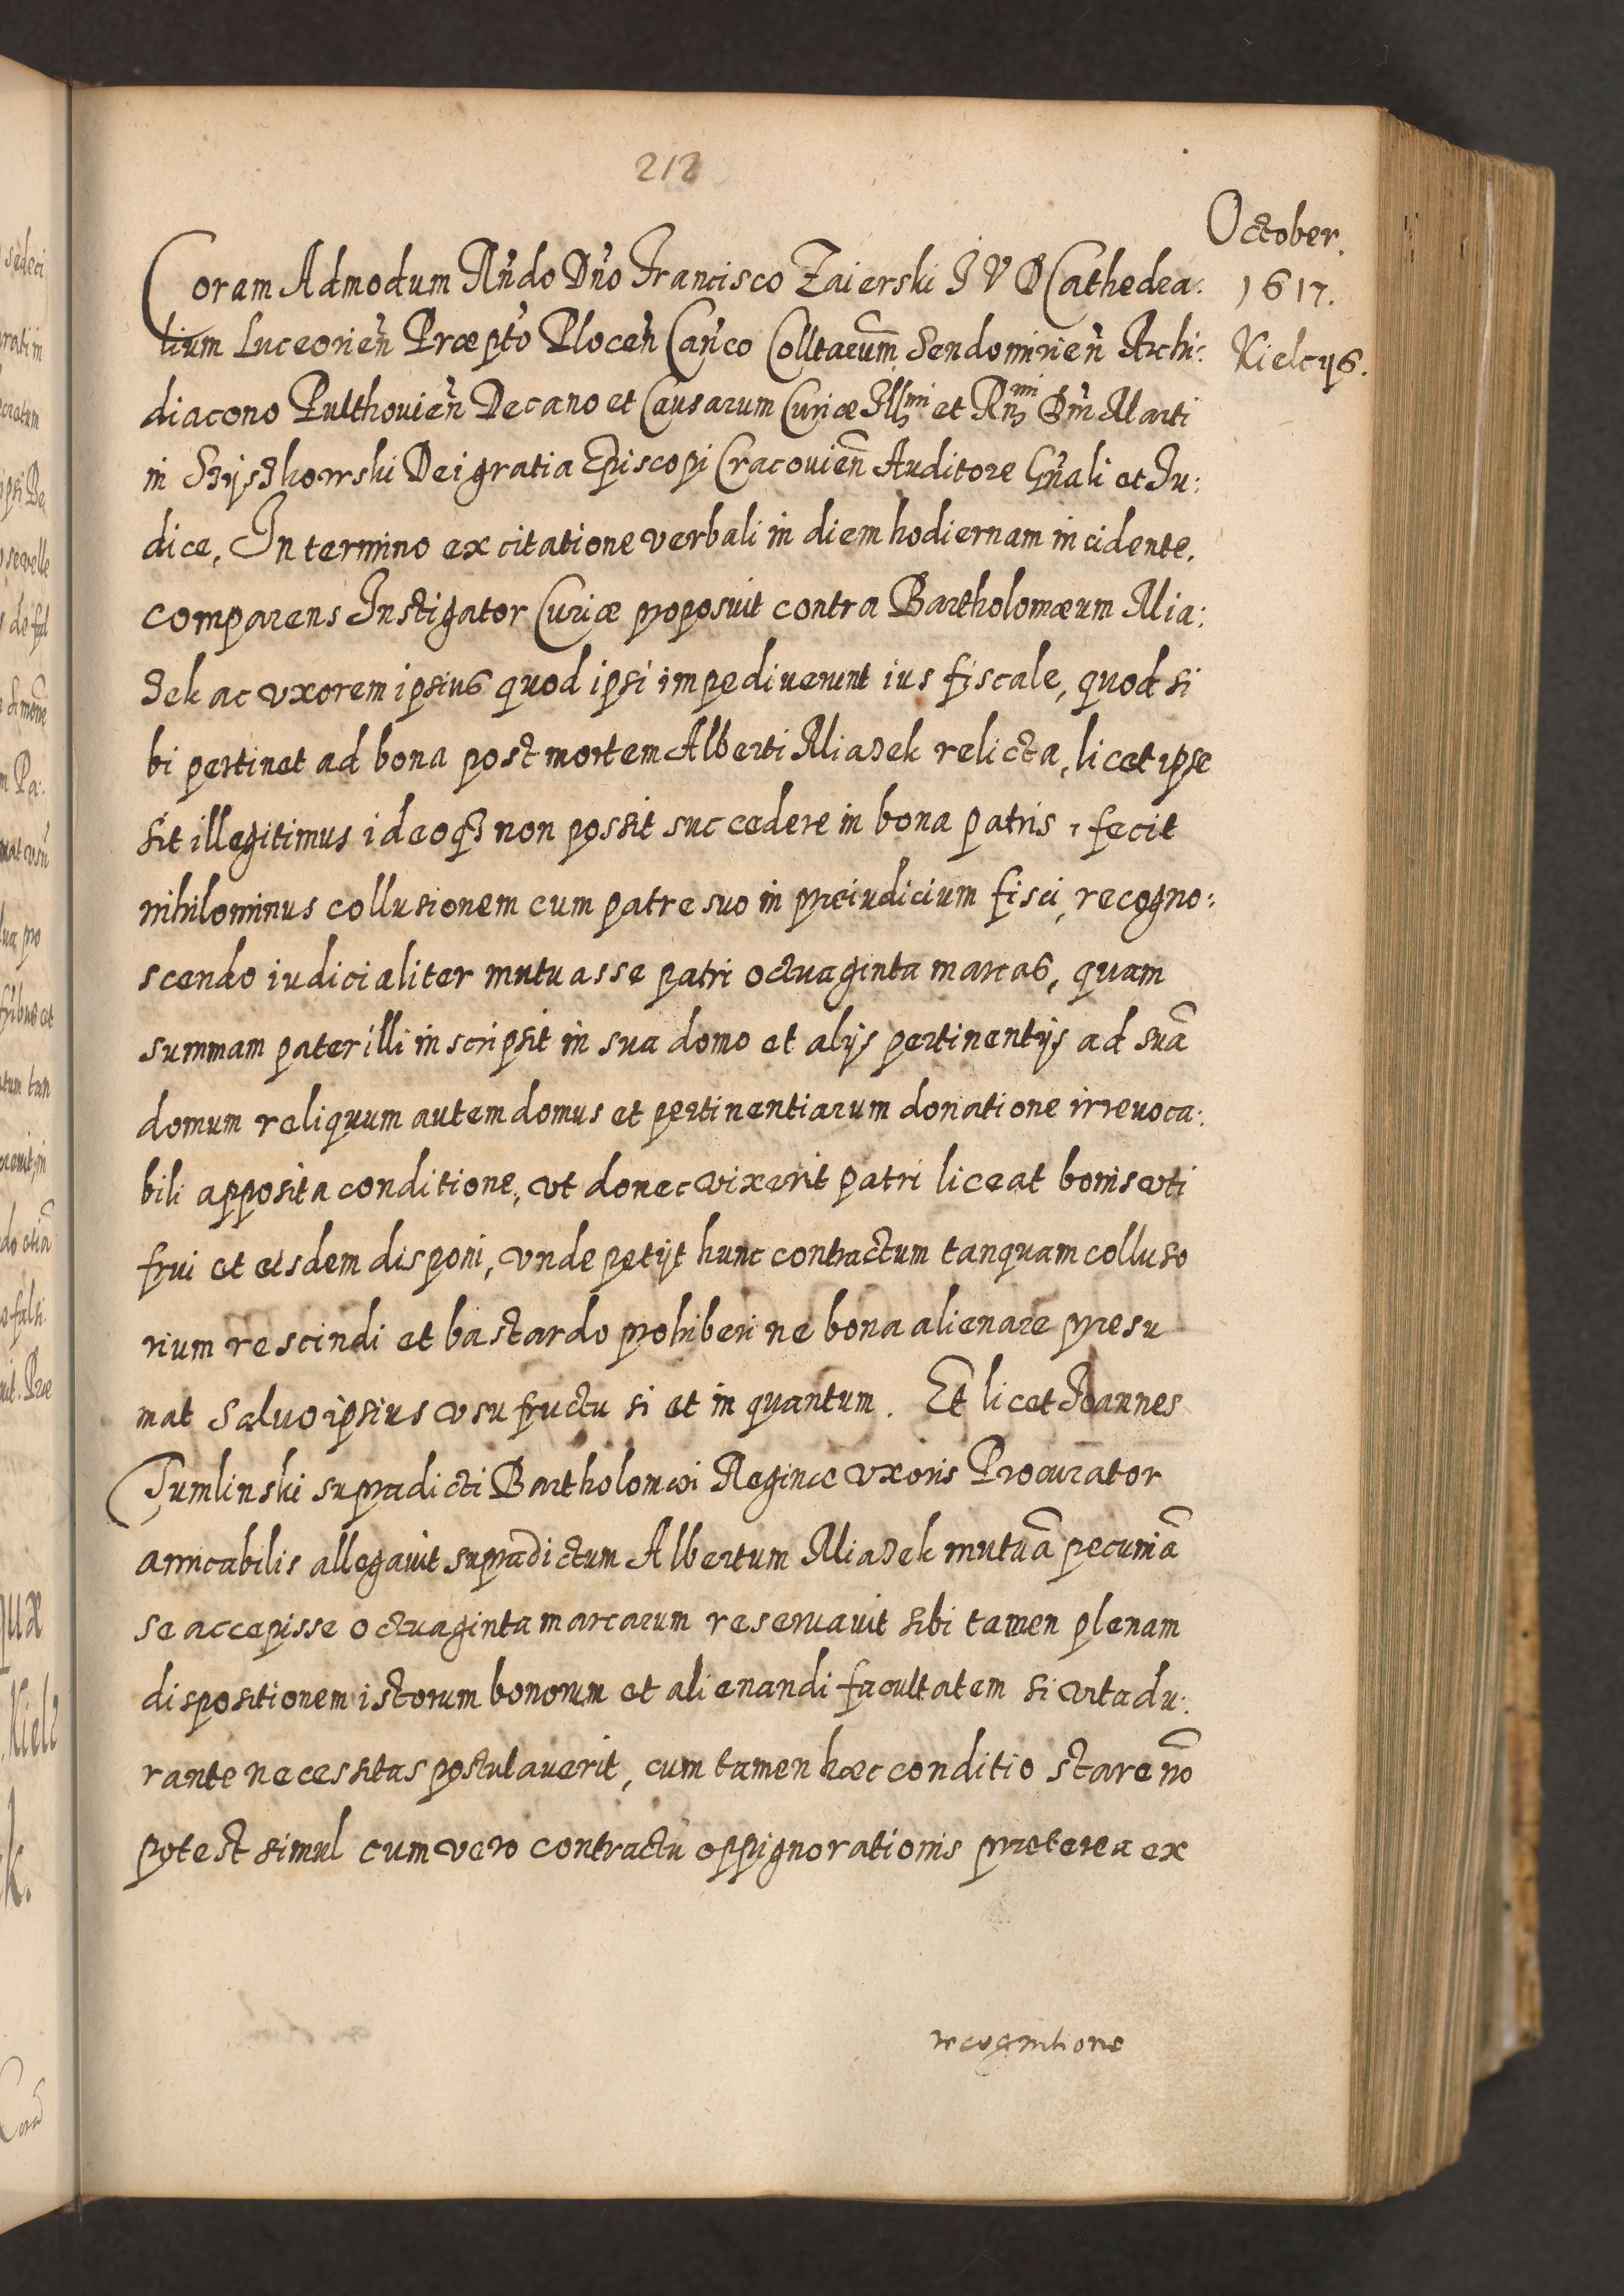 212
October.
1617.
Kielcijs.
Coram Admodum Rñdo Dño Francisco Zaierski I V D Cathedra:
lium Luceorieñ Præpto Ploceñ Cañco Colltarum Sendomirieñ Archi:
diacono Pulthouieñ Decano et Causarum Curiæ Illmi et Rñmi Dñi Marti
ni Szyszkowski Dei gratia Episcopi Cracouieñ Auditore Gñali et Iu:
dice, In termino ex citatione verbali in diem hodiernam incidente,
comparens Instigator Curiæ proposuit contra Bartholomæum Mia:
zek ac vxorem ipsius quod ipsi impediuerunt ius fiscale, quod si
bi pertinet ad bona post mortem Alberti Miazek relicta, licet ipse
sit illegitimus ideoqз non possit succedere in bona patris, fecit
nihilominus collusionem cum patre suo in præiudicium fisci, recogno:
scendo iudicialiter mutuasse patri octuaginta marcas, quam
summam pater illi inscripsit in sua domo et alijs pertinentijs ad suã
domum reliquum autem domus et pertinentiarum donatione irreuoca:
bili apposita conditione, vt donec vixerit patri liceat bonis vti
frui et eisdem disponi, vnde petijt hunc contractum tanquam colluso
rium rescindi et bastardo prohiberi ne bona alienare præsu
mat saluo ipsius vsufructu si et in quantum. Et licet Joannes
Tumlinski supradicti Bartholomæi Reginæ vxoris Procurator
amicabilis allegauit supradictum Albertum Miazek mutuã pecuniã
se accepisse octuaginta marcarum reseruauit sibi tamen plenam
dispositionem istorum bonorum et alienandi facultatem si vita du:
rante necessitas postulauerit, cum tamen hæc conditio stare nõ
potest simul cum vero contractu oppignorationis præterea ex
recognitione